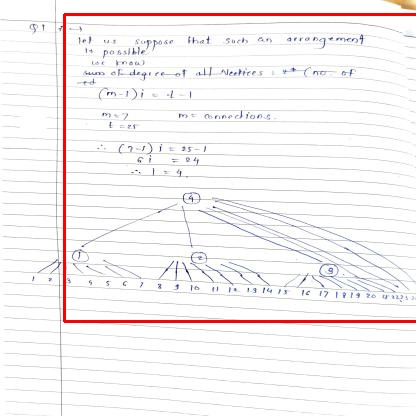 Q1
let us suppose that such an arrangement
is possible
we know
sum of degree of all vertices : 2* (no. of
ed
(m-1) i = t - 1
m = 7 m = connections.
t = 25
∴ (7-1) i = 25-1
6 i = 24
∴ i = 4.
4
1 2 3
1 2 3 4 5 6 7 8 9 10 11 12 13 14 15 16 17 18 19 20 21 22 23